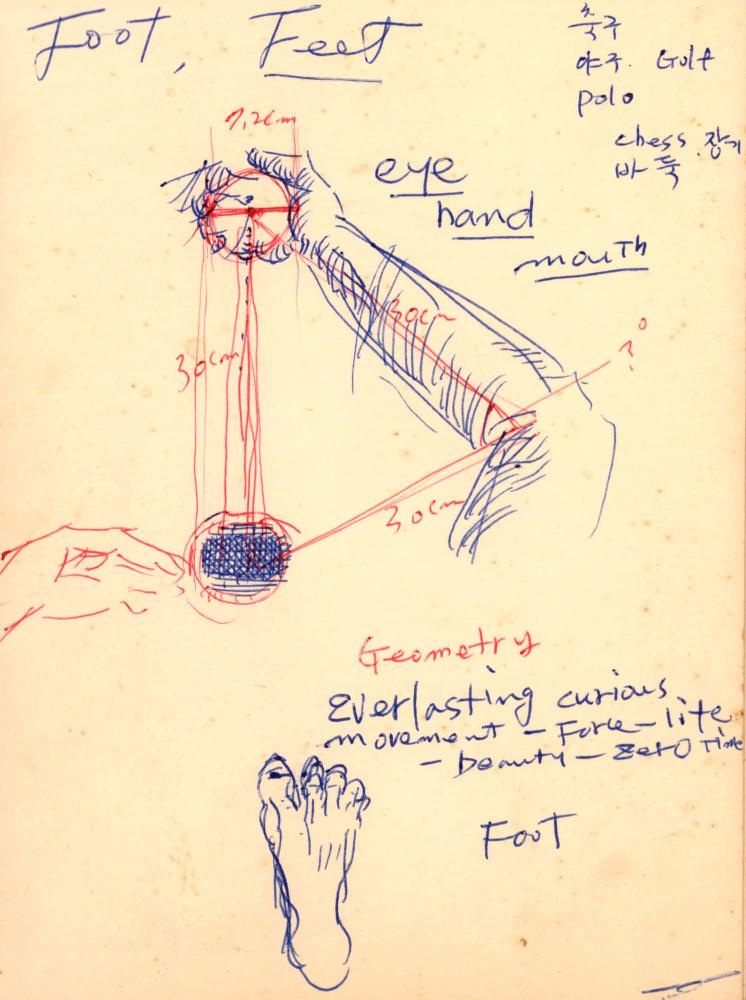 Foot, Feet
축구
야구. Golf
polo
chess 장기
바둑
7.26m
eye
hand
mouth
30cm
30cm
?°
30cm
Geometry
Everlasting curious
movement - Force - life
- beauty - zero Time
Foot